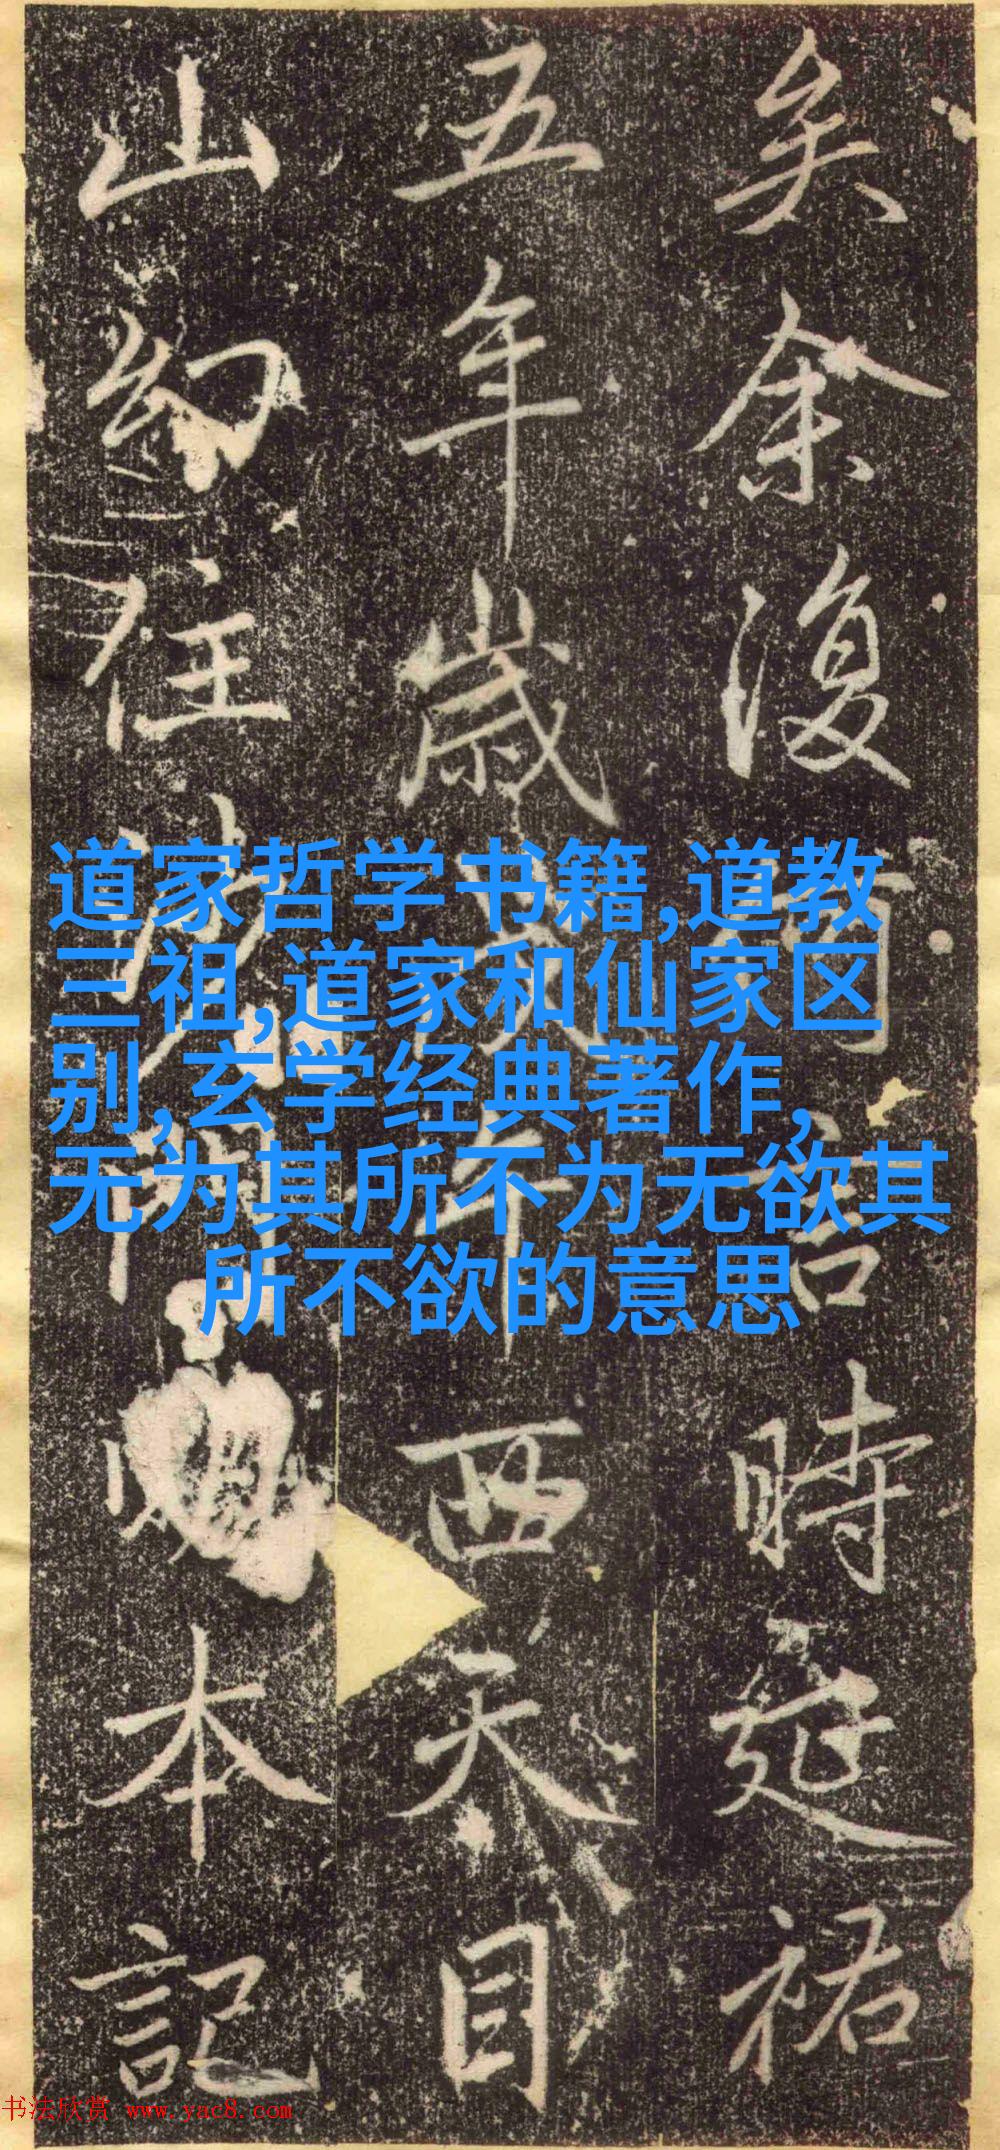 矣余復何言時延祐
五年歲戊午西天目
山幻住沙門明本記
道家哲学书籍,道教
三祖,道家和仙家区
别,玄学经典著作,
无为其所不为无欲其
所不欲的意思
书法欣赏 www.yac8.com